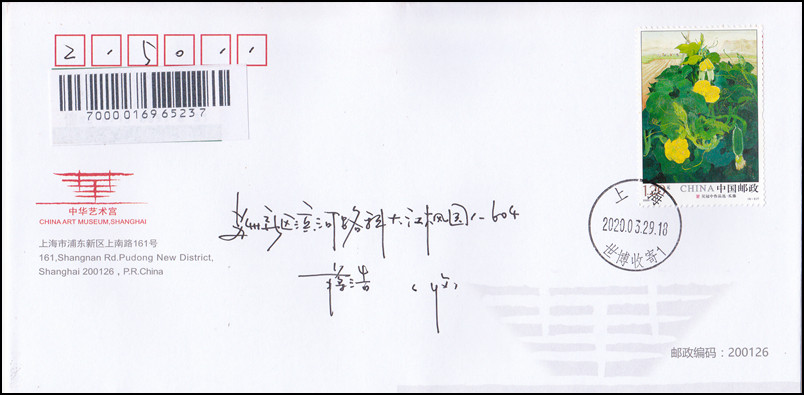 215011
7000016965237
中华艺术宫
CHINA ART MUSEUM,SHANGHAI
上海市浦东新区上南路161号
161,Shangnan Rd.Pudong New District,
Shanghai 200126 , P.R.China
苏州新区滨河路 1-604
蒋浩 (收)
CHINA 中国邮政
上海
2020.03.29.18
世博收寄1
邮政编码:200126